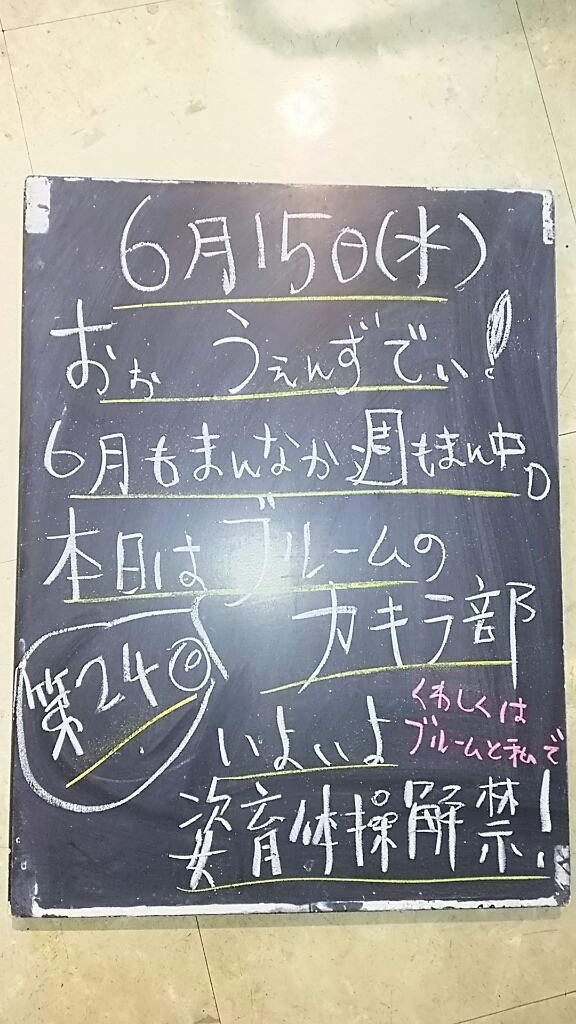 6月15日(水)
おぉ うぇんずでぃ!
6月もまんなか週もまん中。
本日はブルームの
カキラ部
第24回
いよいよ
くわしくは
ブルームと私で
姿育体操解禁!